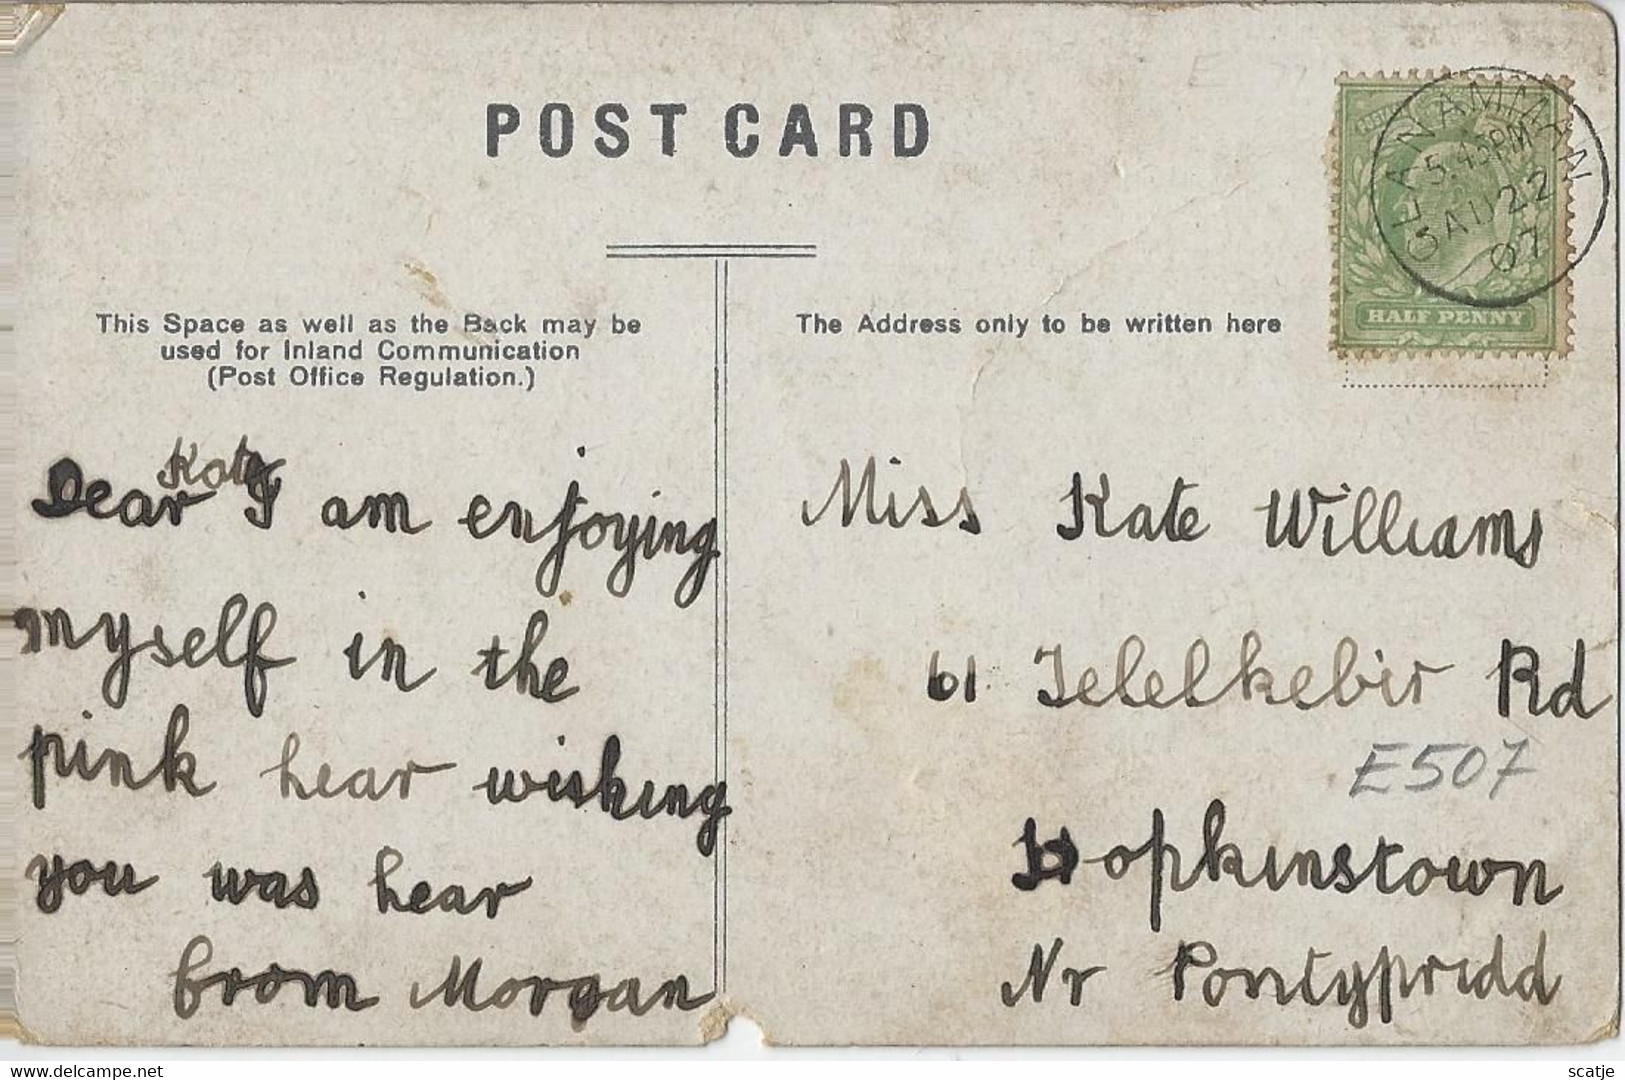 POST CARD
GLANAMMAN
5.45PM
AU 22
07
HALF PENNY
This Space as well as the Back may be
used for Inland Communication
(Post Office Regulation.)
The Address only to be written here
Dear Kate I am enjoying
myself in the
pink hear wishing
you was hear
from Morgan
Miss Kate Williams
61 Telelkebir Rd
E507
Hopkinstown
Nr Pontypridd
www.delcampe.net
scatje